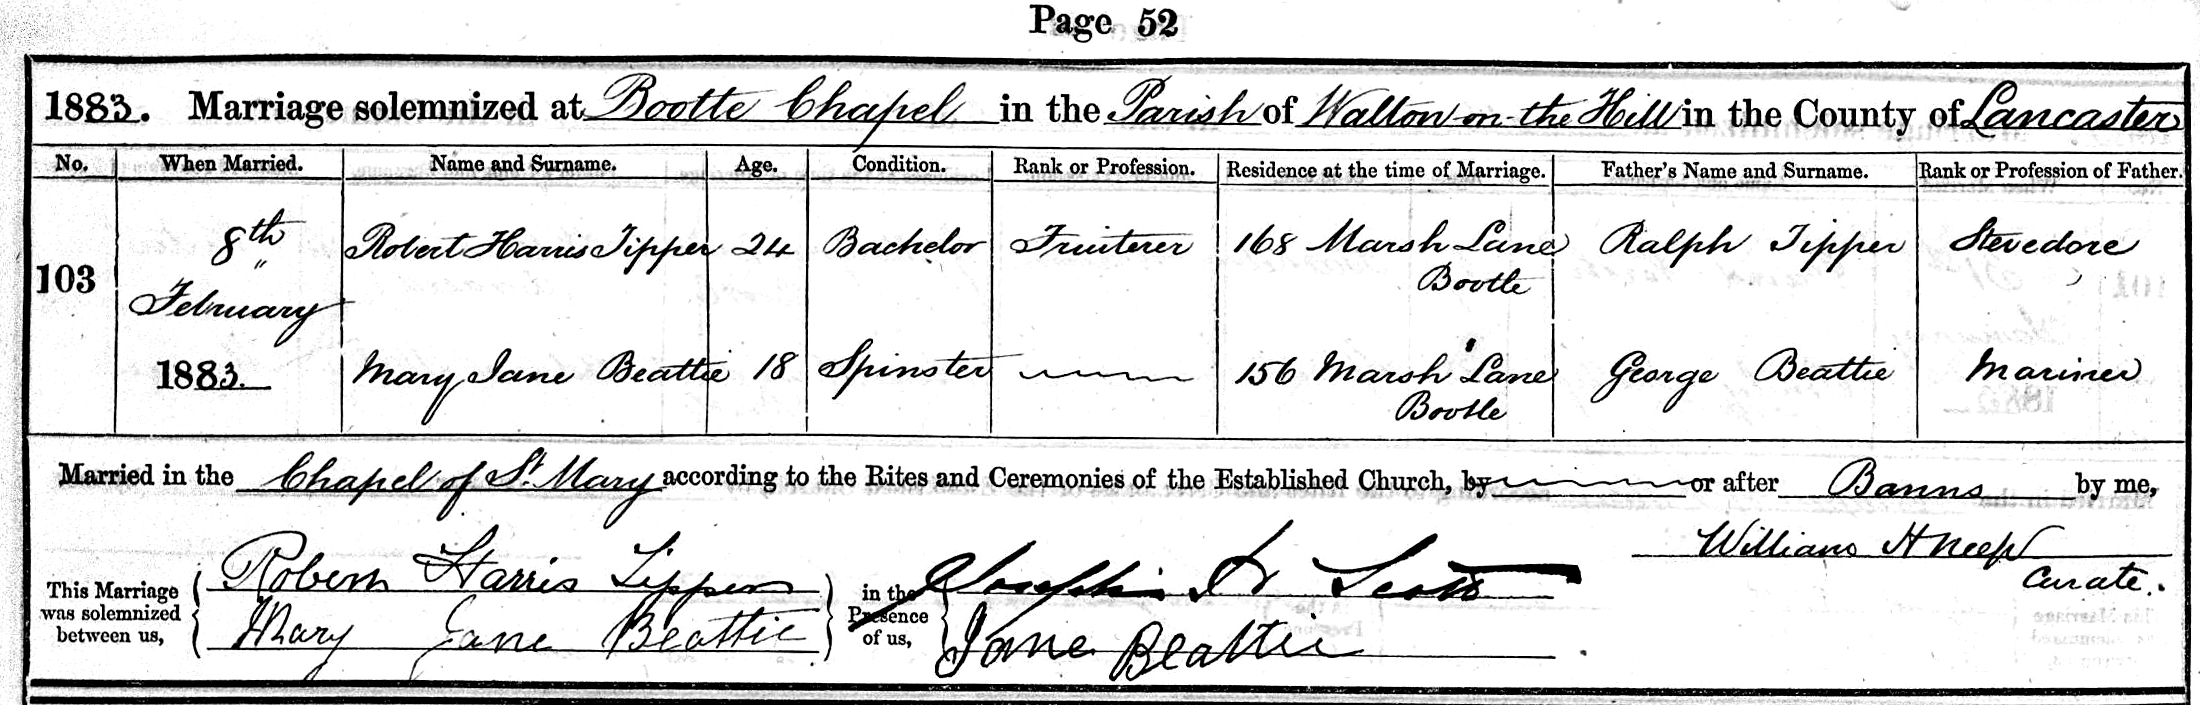 Page 52
1883. Marriage solemnized at Bootle Chapel in the Parish of Walton-on-the-Hill in the County of Lancaster
No. When Married. Name and Surname. Age. Condition. Rank or Profession. Residence at the time of Marriage. Father's Name and Surname. Rank or Profession of Father.
103 8th February 1883. Robert Harris Tipper 24 Bachelor Fruiterer 168 Marsh Lane Bootle Ralph Tipper Stevedore
Mary Jane Beattie 18 Spinster 156 Marsh Lane Bootle George Beattie Mariner
Married in the Chapel of St. Mary according to the Rites and Ceremonies of the Established Church, by or after Banns by me,
William H
Curate.
This Marriage was solemnized between us, Robert Harris Tipper in the Presence of us, Joseph Scott
Mary Jane Beattie Jane Beattie